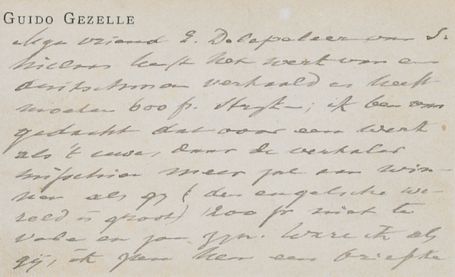 GUIDO GEZELLE
Mijn vriend E. Decapeleer van S.
Niclaas heeft het werk van een
duitschman verhaald en heeft
moeten 600 fr. ; ik ben van
gedacht dat voor een werk
als 't uwe, daar de verhaler
misschien meer zal aan win-
nen als gij (de engelsche we-
reld is groot) 1200 fr niet te
vele en zou zijn. Ware ik als
gij, ik zou hem een briefke